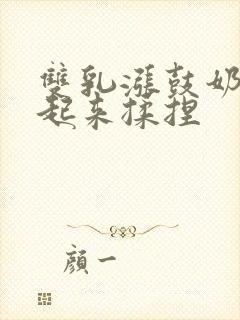 雙乳漲鼓奶
起来揉捏
顏一